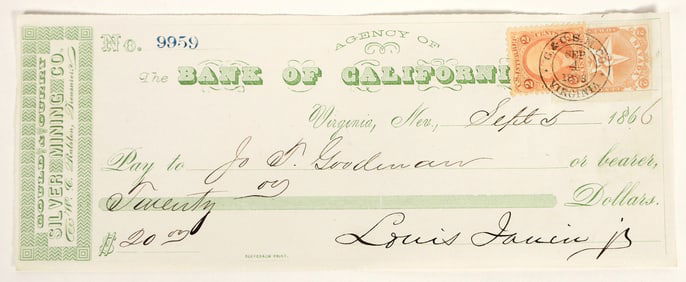 GOULD & CURRY
SILVER MINING CO.
No. 9959
AGENCY OF
The BANK OF CALIFORNI
G. & C. S. M. CO.
SEP
VIRGINIA
Virginia, Nev., Sept 5 1866
Pay to Jo T. Goodman or bearer,
Twenty 00 Dollars.
$ 20 00
Louis Janin jr